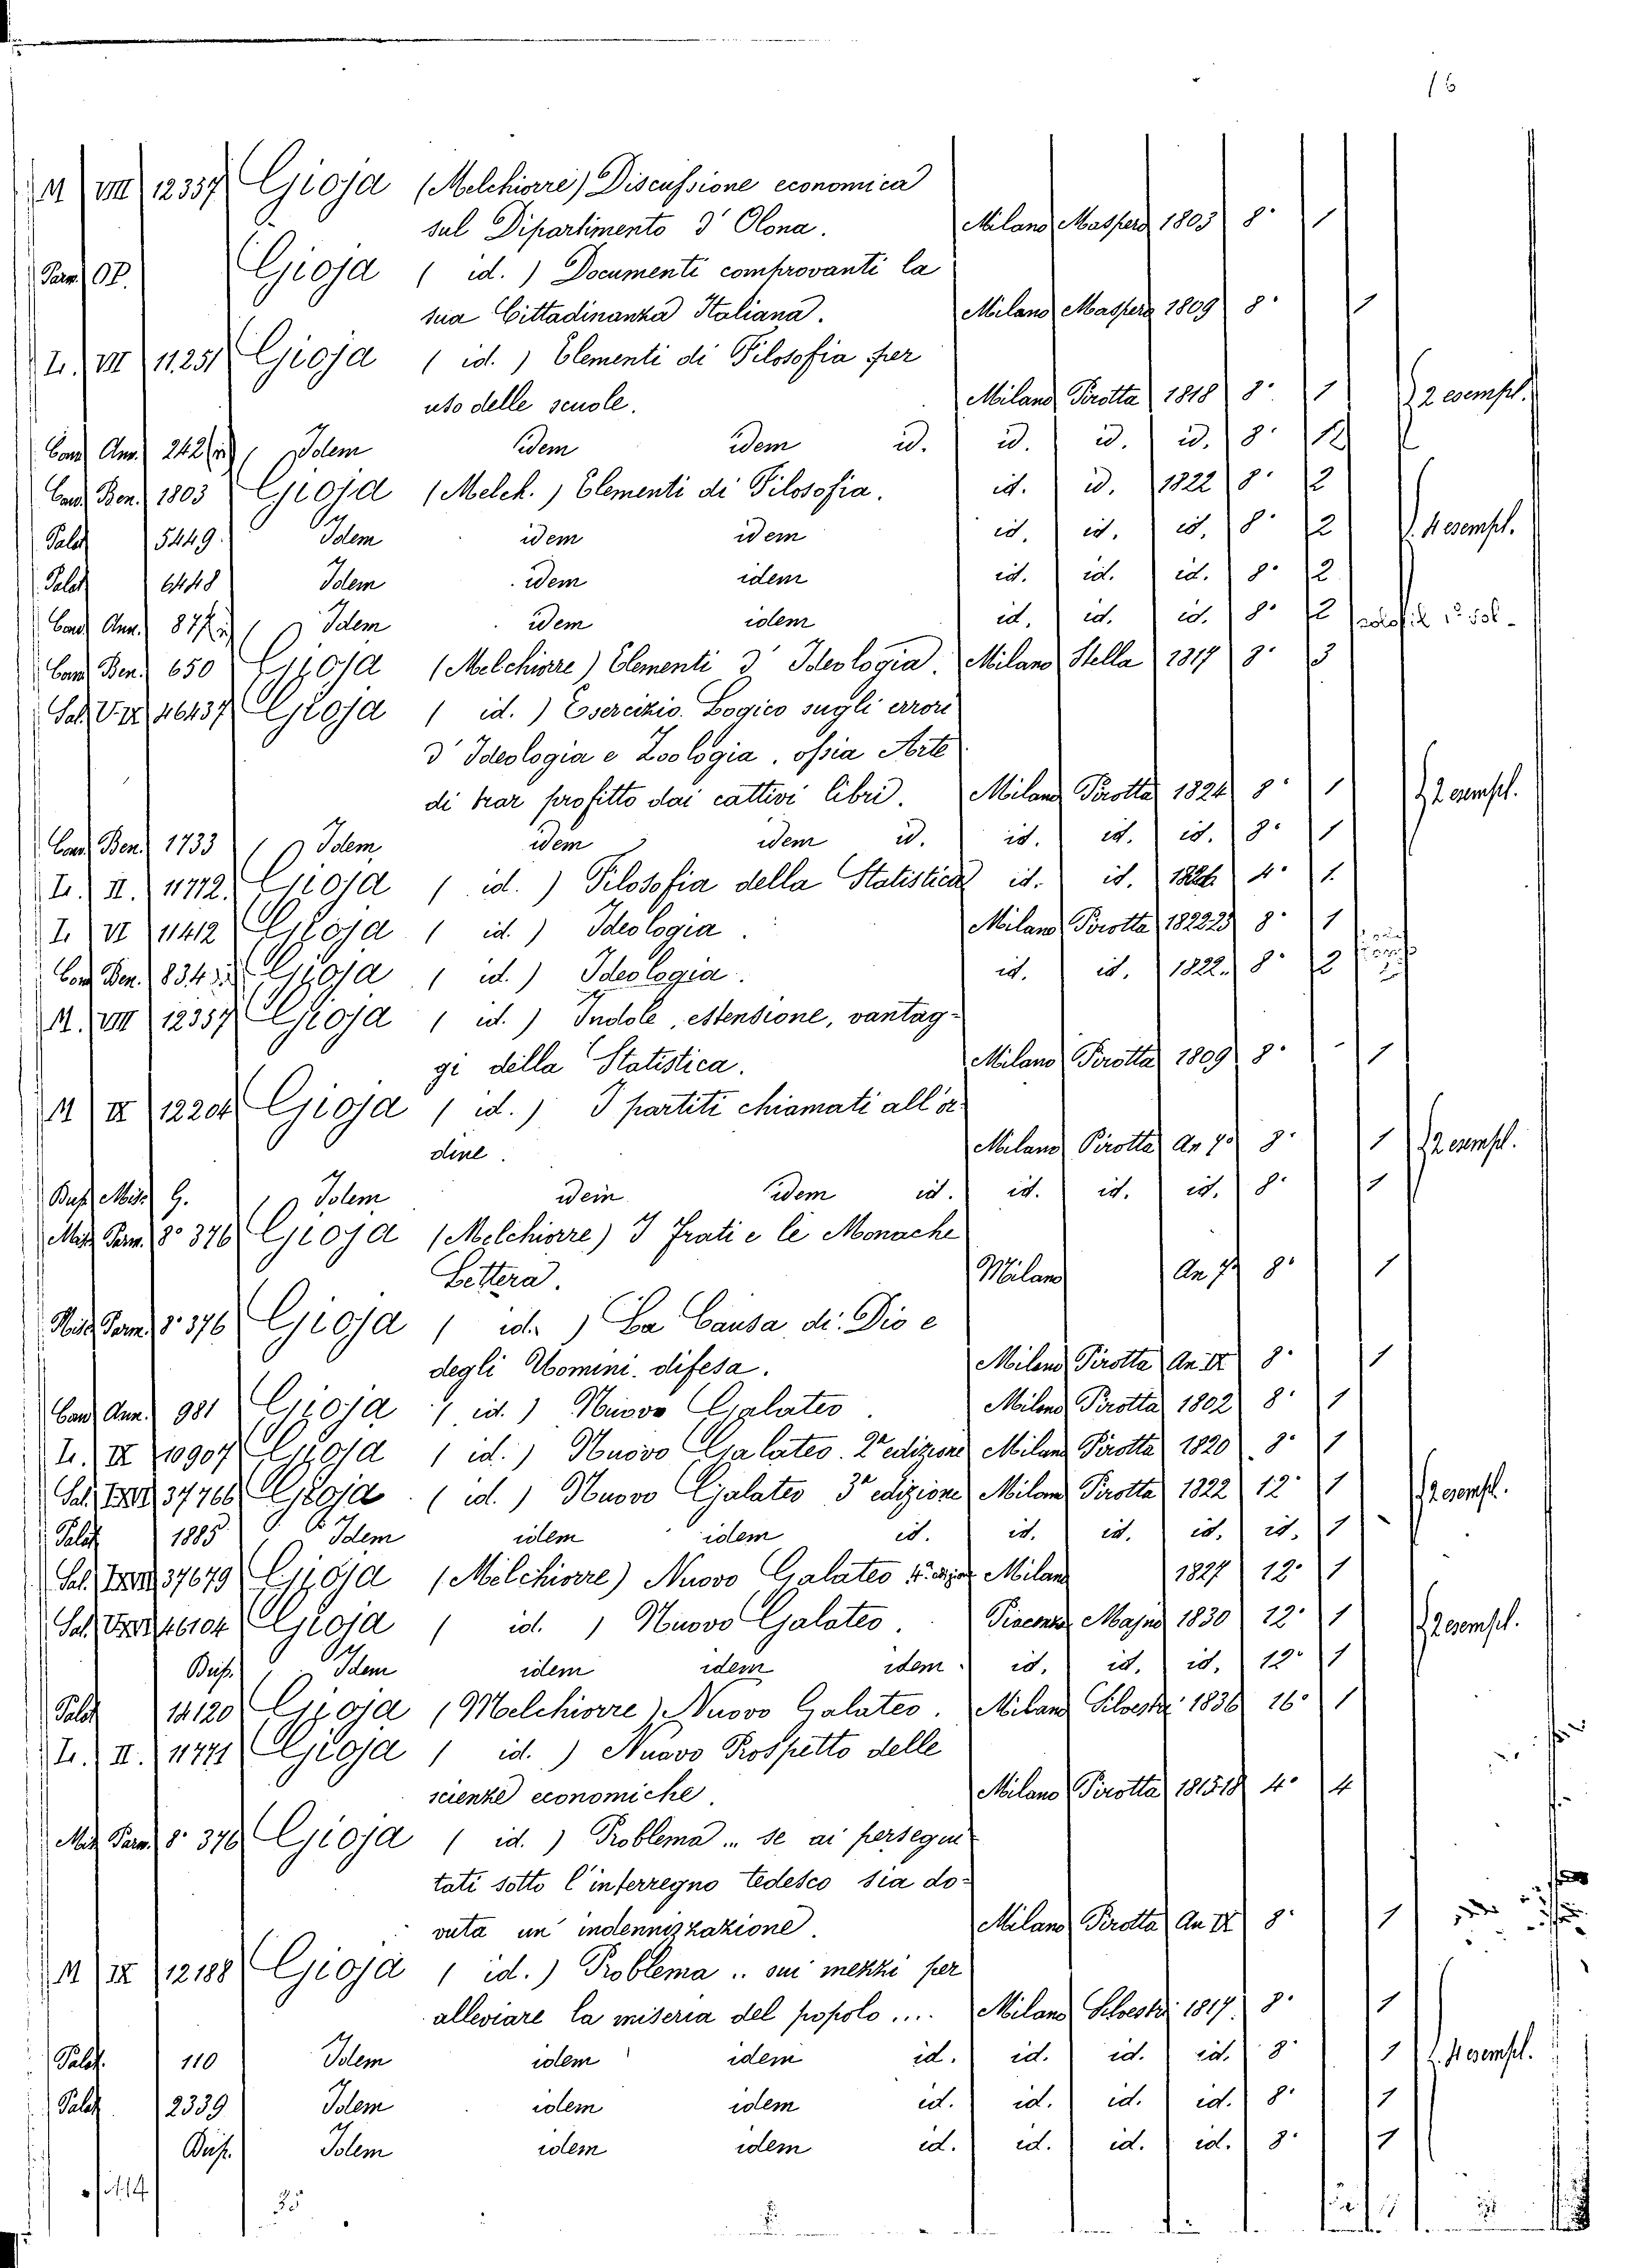 16
M VIII 12357 Gioja (Melchiorre) Discussione economica
sul Dipartimento d'Olona. Milano Maspero 1803 8° 1
Parm. OP. Gioja ( id. ) Documenti comprovanti la
sua Cittadinanza Italiana. Milano Maspero 1809 8° 1
L. VII 11251 Gioja ( id. ) Elementi di Filosofia per
uso delle scuole. Milano Pirotta 1818 8° 1 2 esempl.
Cons. Ann. 242 Idem idem idem id. id. id. id. 8° 12
Cons. Ben. 1803 Gioja (Melch.) Elementi di Filosofia. id. id. 1822 8° 2
Palat. 5449 Idem idem idem id. id. id. 8° 2 4 esempl.
Palat. 6448 Idem idem idem id. id. id. 8° 2
Cons. Ann. 87 Idem idem idem id. id. id. 8° 2
Cons. Ben. 650 Gioja (Melchiorre) Elementi d'Ideologia. Milano Stella 1817 8° 3
Sal. V. IX 46437 Gioja ( id. ) Esercizio Logico sugli errori
d'Ideologia e Zoologia, ossia Arte
di trar profitto dai cattivi libri. Milano Pirotta 1824 8° 1 2 esempl.
Cons. Ben. 1733 Idem idem idem id. id. id. id. 8° 1
L. II. 11772. Gioja ( id. ) Filosofia della Statistica id. id. 1826 4° 1
L. VI 11412 Gioja ( id. ) Ideologia. Milano Pirotta 1822-23 8° 1
Cons. Ben. 834 Gioja ( id. ) Ideologia. id. id. 1822. 8° 2
M. VIII 12357 Gioja ( id. ) Indole, estensione, vantag-
gi della Statistica. Milano Pirotta 1809 8° 1
M IX 12204 Gioja ( id. ) I partiti chiamati all'or-
dine. Milano Pirotta An 7° 8° 1 2 esempl.
Buss. Misc. G. Idem idem idem id. id. id. id. 8° 1
Misc. Parm. 8° 376 Gioja (Melchiorre) I Frati e le Monache
Lettera. Milano An 7° 8° 1
Misc. Parm. 8° 376 Gioja ( id. ) La Causa di Dio e
degli Uomini difesa. Milano Pirotta An IX 8° 1
Cons. Ann. 981 Gioja ( id. ) Nuovo Galateo. Milano Pirotta 1802 8° 1
L. IX 10907 Gioja ( id. ) Nuovo Galateo. 2ª edizione Milano Pirotta 1820 8° 1
Sal. 37766 Gioja ( id. ) Nuovo Galateo 3ª edizione Milano Pirotta 1822 12° 1 2 esempl.
Palat. 1885 Idem idem idem id. id. id. id. id. 1
Sal. 37679 Gioja (Melchiorre) Nuovo Galateo Milano 1827 12° 1
Sal. 46104 Gioja ( id. ) Nuovo Galateo. Piacenza Majno 1830 12° 1 2 esempl.
Buss. Idem idem idem idem id. id. id. 12° 1
Palat. 14120 Gioja (Melchiorre) Nuovo Galateo. Milano Silvestri 1836 16° 1
L. II. 11771 Gioja ( id. ) Nuovo Prospetto delle
scienze economiche. Milano Pirotta 1815-18 4° 4
Misc. Parm. 8° 376 Gioja ( id. ) Problema .. se ai persegui-
tati sotto l'interregno tedesco sia do-
vuta un' indennizzazione. Milano Pirotta An IX 8° 1
M IX 12188 Gioja ( id. ) Problema .. sui mezzi per
alleviare la miseria del popolo .... Milano Silvestri 1817 8° 1
Palat. 110 Idem idem idem id. id. id. id. 8° 1 4 esempl.
Palat. 2339 Idem idem idem id. id. id. id. 8° 1
Buss. Idem idem idem id. id. id. id. 8° 1
35